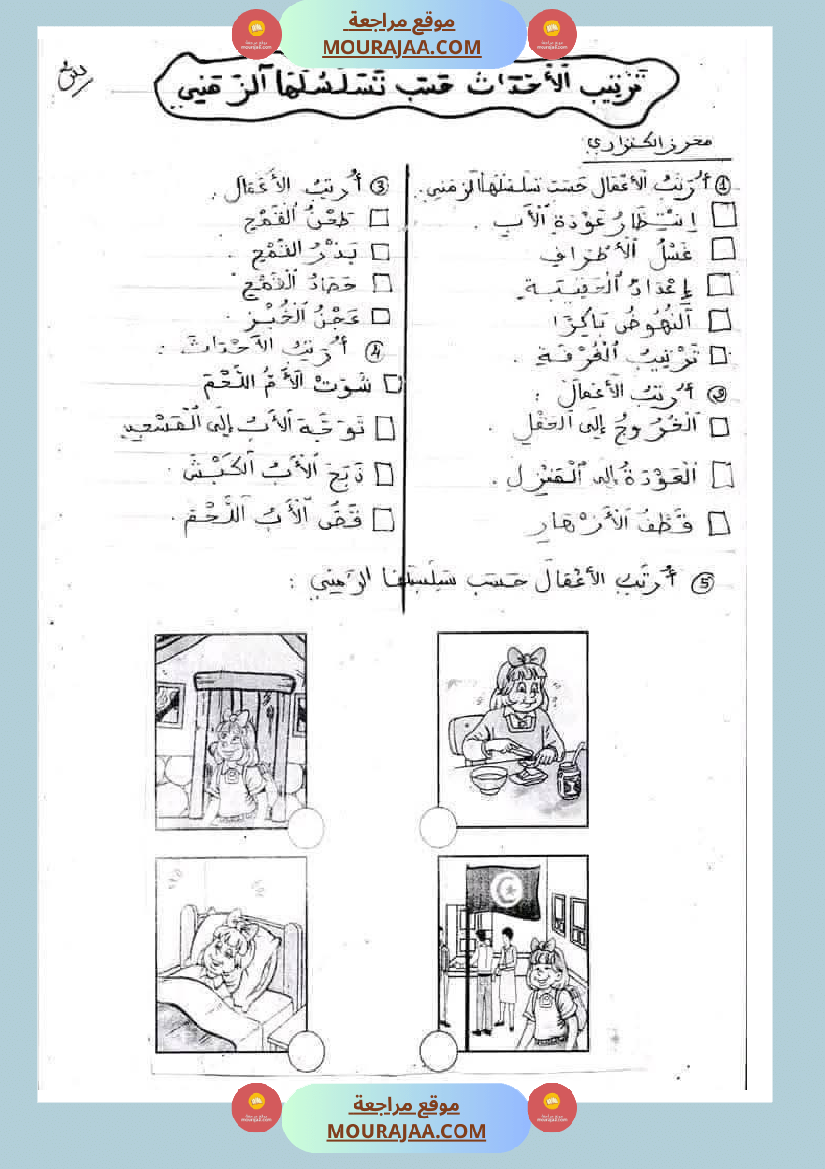 موقع مراجعة
MOURAJAA.COM
تَرْتِيبُ ٱلْأَحْدَاثِ حَسَبَ تَسَلْسُلِهَا ٱلزَّمَنِي
محرز الكنزاري
① أُرَتِّبُ ٱلْأَعْمَالَ حَسَبَ تَسَلْسُلِهَا ٱلزَّمَنِي.
اِنْتِظَارُ عَوْدَةِ ٱلْأَبِ.
غَسْلُ ٱلْأَطْرَافِ
إِعْدَادُ ٱلْحَقِيبَةِ
ٱلنُّهُوضُ بَاكِرًا
تَرْتِيبُ ٱلْغُرْفَةِ.
② أُرَتِّبُ ٱلْأَعْمَالَ:
ٱلْخُرُوجُ إِلَى ٱلْحَقْلِ.
ٱلْعَوْدَةُ إِلَى ٱلْمَنْزِلِ.
قَطْفُ ٱلْأَزْهَارِ
③ أُرَتِّبُ الْأَعْمَالَ.
طَحْنُ ٱلْقَمْحِ
بَذْرُ ٱلْقَمْحِ.
حَصَادُ ٱلْقَمْحِ.
عَجْنُ ٱلْخُبْزِ.
④ أُرَتِّبُ الأَحْدَاثَ:
شَوَتْ ٱلْأُمُّ اللَّحْمَ
تَوَجَّهَ ٱلْأَبُ إِلَى ٱلْمَسْجِدِ
ذَبَحَ ٱلْأَبُ ٱلْكَبْشَ.
قَصَّ ٱلْأَبُ ٱللَّحْمَ.
⑤ أُرَتِّبُ الأَعْمَالَ حَسَبَ تَسَلْسُلِهَا الزَّمَنِي:
موقع مراجعة
MOURAJAA.COM